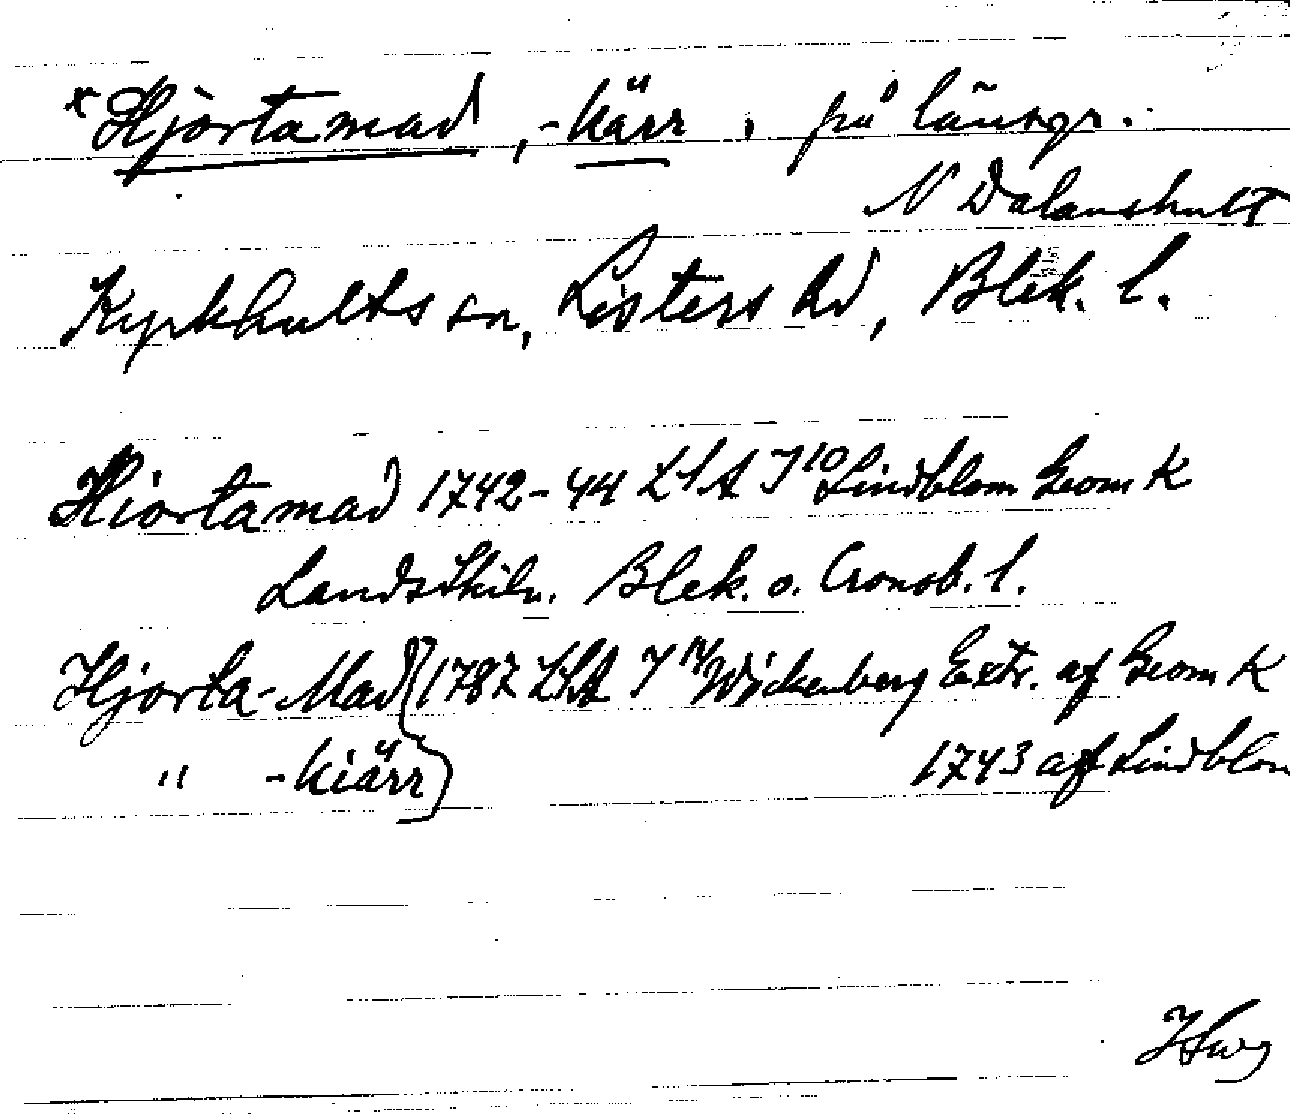 x Hjortamad, -kärr, på länsgr.
N Dalanshult
Kyrkhults sn, Listers hd, Blek. l.
Hiortamad 1742-44 LSA J10 Lindblom Geom K
LandsSkiln. Blek. o. Cronob. l.
Hjorta-Mad 1787 LSA J Wickenberg Extr. af Geom K
" -kiärr 1743 aff Lindblom